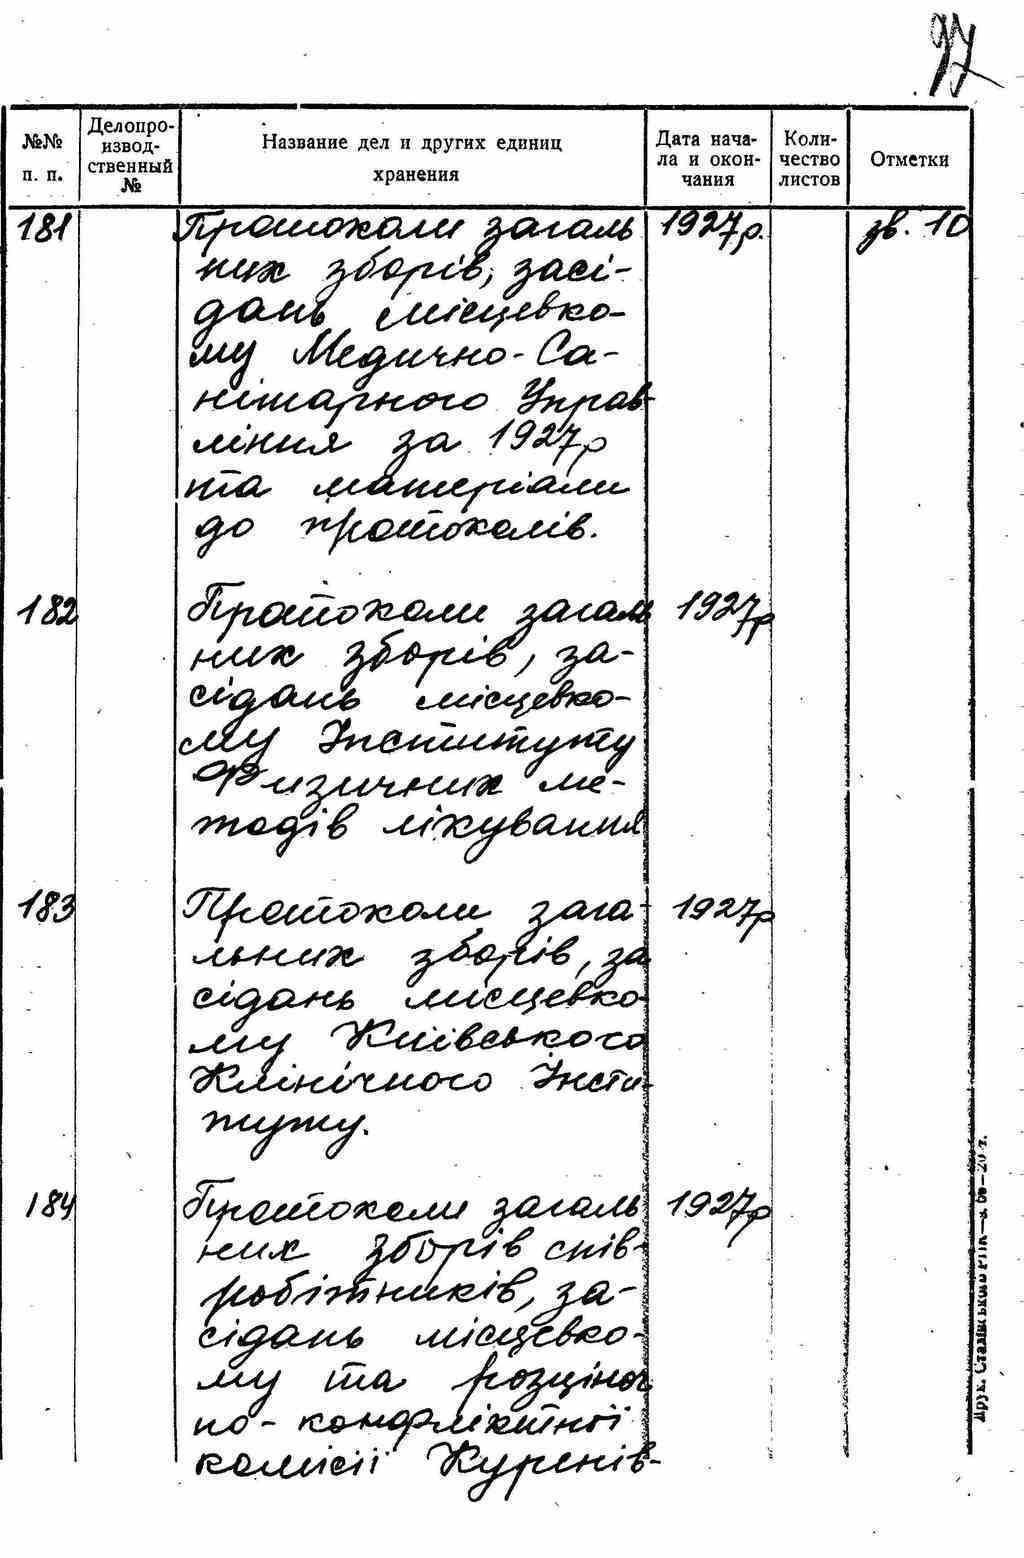 97
№№ п. п.
Делопро-
извод-
ственный
№
Название дел и других единиц
хранения
Дата нача-
ла и окон-
чания
Коли-
чество
листов
Отметки
181 Протоколи загаль 1927р. зв. 10
них зборів, засі-
дань місцевко-
му Медично-Са-
нітарного Управ-
ління за 1927р
та матеріали
до протоколів.
182 Протоколи загаль 1927р
них зборів, за-
сідань місцевко-
му Інституту
Физичних ме-
тодів лікування
183 Протоколи зага- 1927р
льних зборів, за
сідань мисцевко-
му Київського
Клінічного Інсти-
туту.
184 Протоколи загаль 1927р
них зборів спів-
робітників, за-
сідань місцевко-
му та розціноч
но-конфліктної
комісії Куренів-
Друк. Сталінського